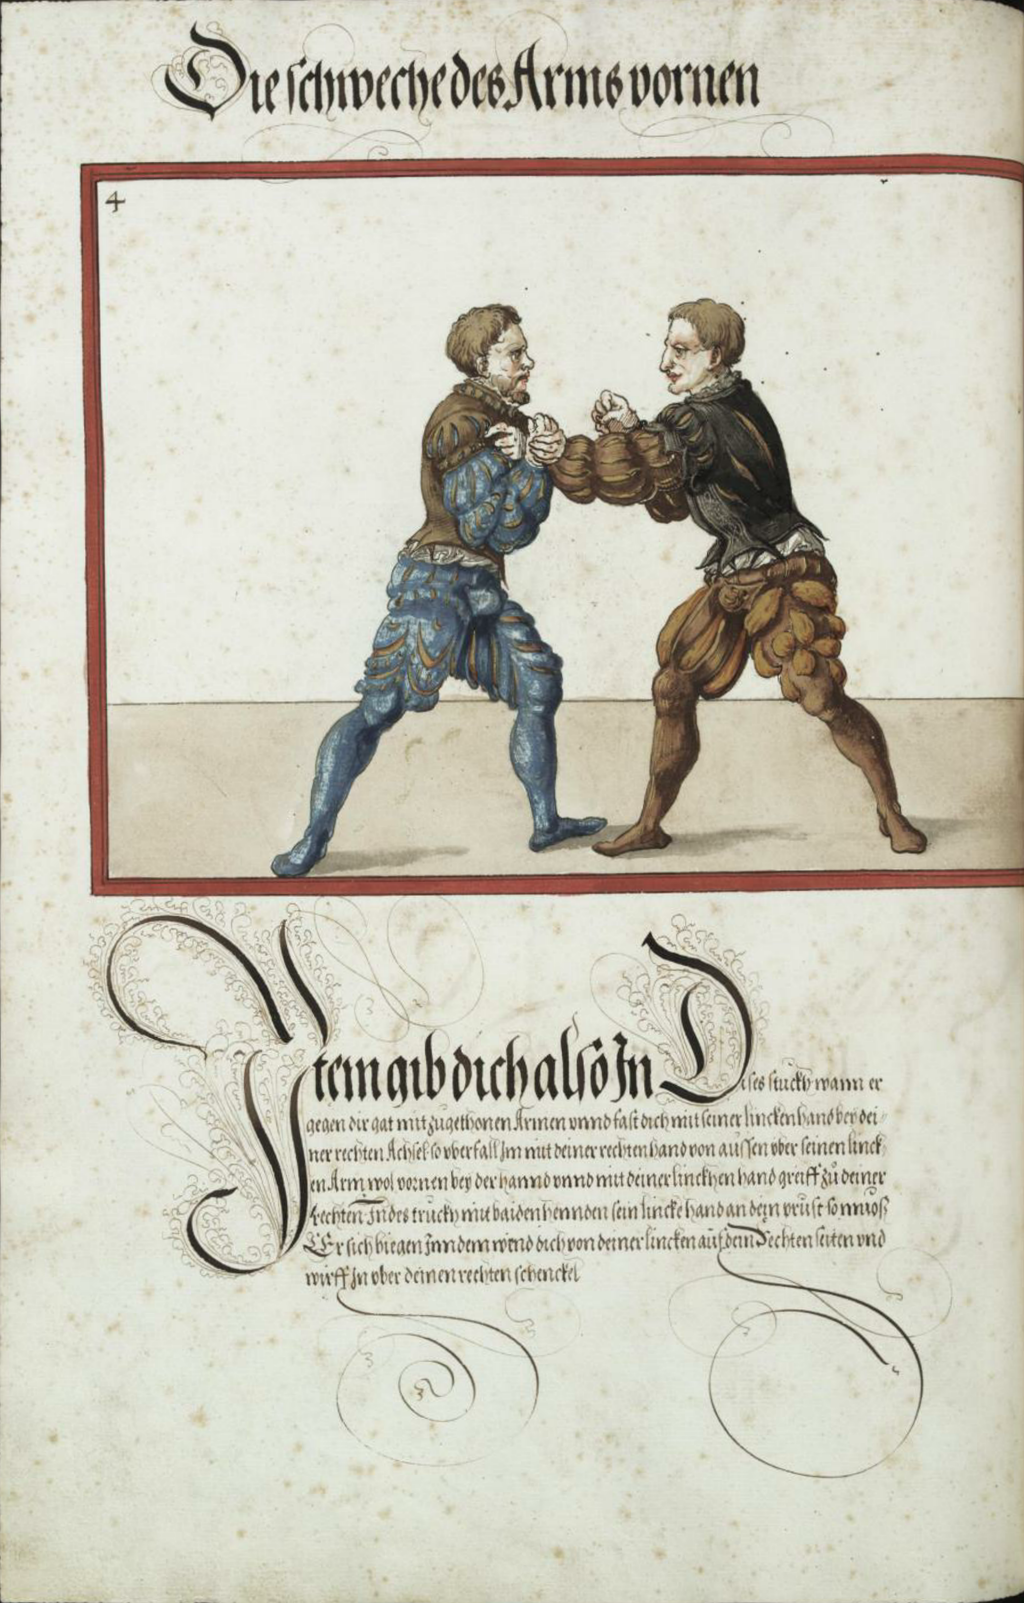 Die schweche des Arms vornen
4
Ytem gib dich also Jn Dises stuckh wann er
gegen dir gat mit zugethonen Armen vnnd fast dich mit seiner lincken hand bey dei-
ner rechten Achsel so vberfall Jm mit deiner rechten hand von aussen vber seinen linck
en Arm wol vornen bey der hannd vnnd mit deiner linckhen hand greiff zů deiner
Rechten Jndes truckh mit baiden hennden sein lincke hand an dein brust so muoß
Er sich biegen Jnndem wend dich von deiner lincken auf dein Rechten seiten vnd
wirff Jn vber deinen rechten schenckel